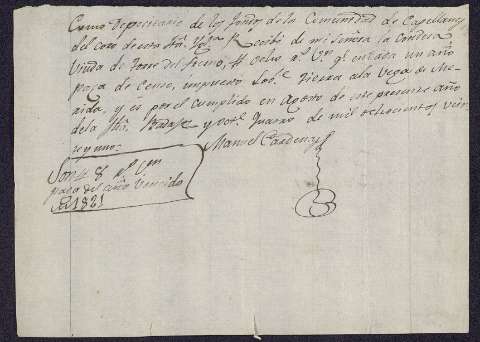 Como Depositario de los fondos de la Comunidad de Capellanes
del coro de esta Sta. Ygla. Recibí de mi Señora la Condesa
Viuda de Torre del Fresno, # ocho rs. vn. qe. en cada un año
paga de Censo, impuesto sobe. tierra a la Vega de
y es por el cumplido en Agosto de este presente año
de la fha. Badajz. y 
 de mil ochocientos vein
te y uno=
Manuel Cardenas
Son # 8 rs. vn.
paga del año vencido
en 1821